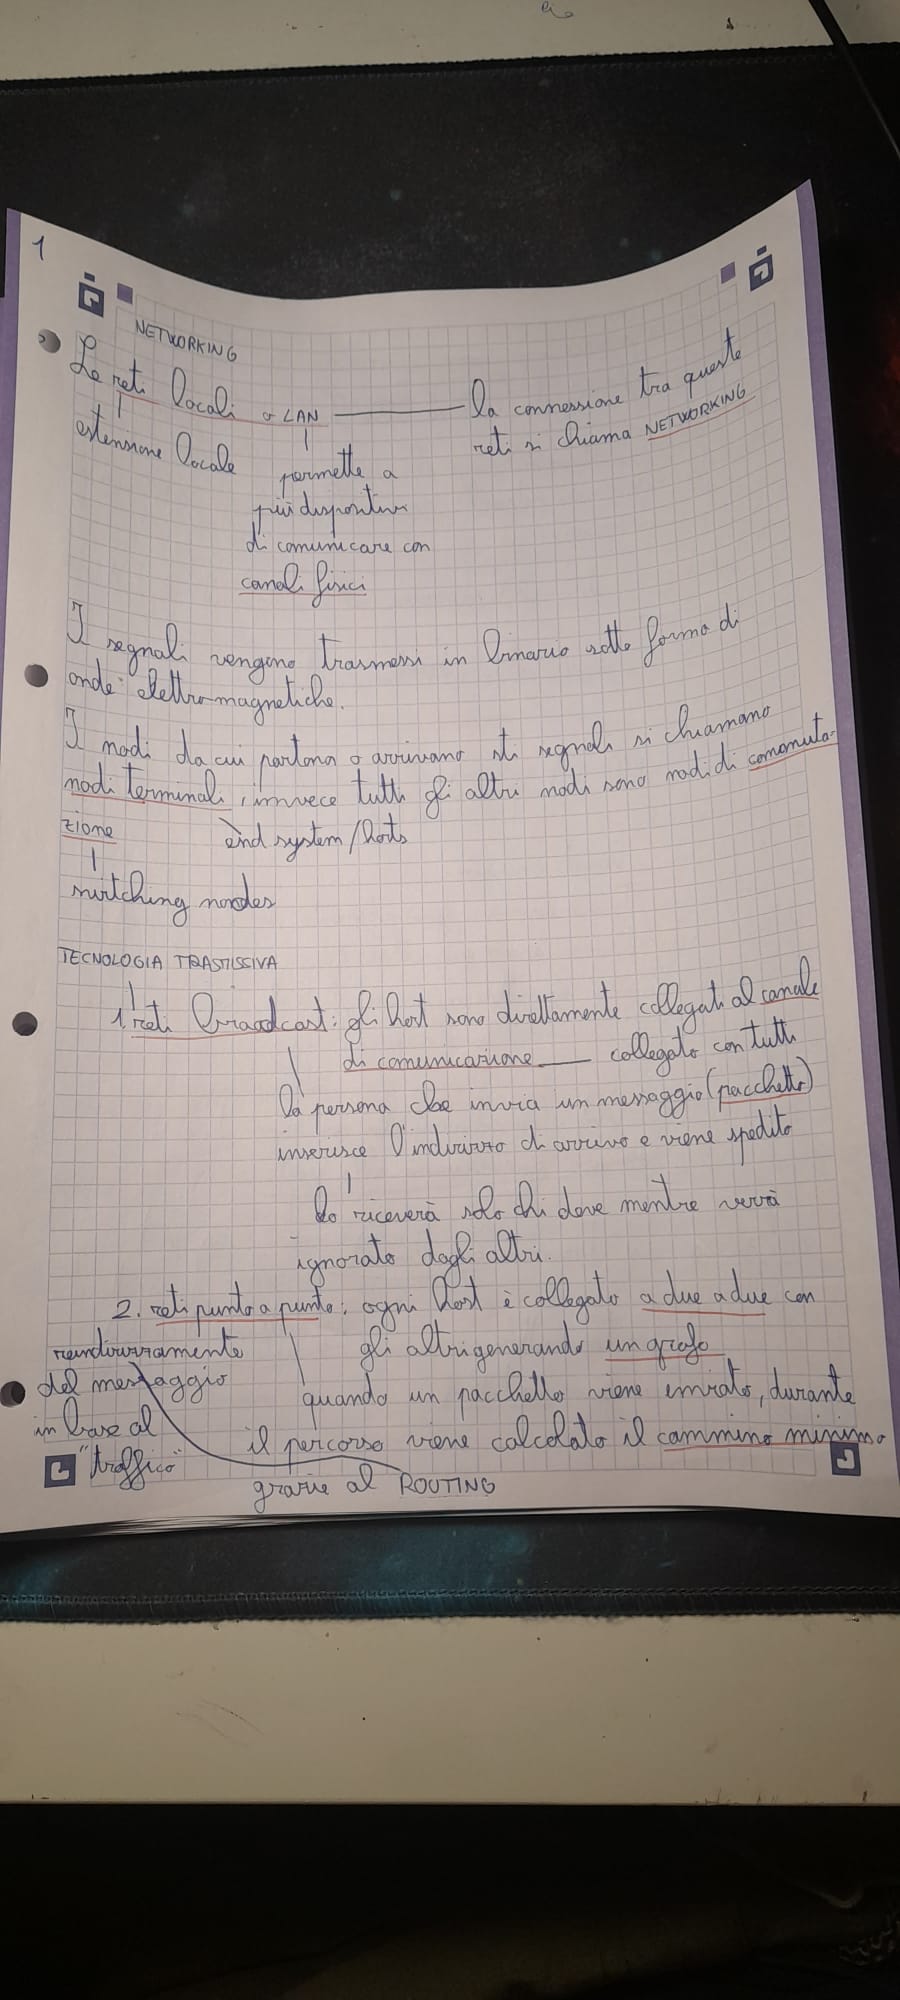 1
NETWORKING
Le reti locali o LAN
la connessione tra queste
reti si chiama NETWORKING
estensione locale
permette a
più dispositivi
di comunicare con
canali fisici
I segnali vengono trasmessi in binario sotto forma di
onde elettromagnetiche.
I nodi da cui partono o arrivano sti segnali si chiamano
nodi terminali, invece tutti gli altri nodi sono nodi di commuta-
zione
end system/hosts
switching nodes
TECNOLOGIA TRASMISSIVA
1. reti broadcast: gli host sono direttamente collegati al canale
di comunicazione collegato con tutti
la persona che invia un messaggio (pacchetto)
inserisce l'indirizzo di arrivo e viene spedito
lo riceverà solo chi deve mentre verrà
ignorato dagli altri.
2. reti punto a punto: ogni host è collegato a due a due con
gli altri generando un grafo
quando un pacchetto viene inviato, durante
il percorso viene calcolato il cammino minimo
grazie al ROUTING
reindirizzamento
del messaggio
in base al
"traffico"